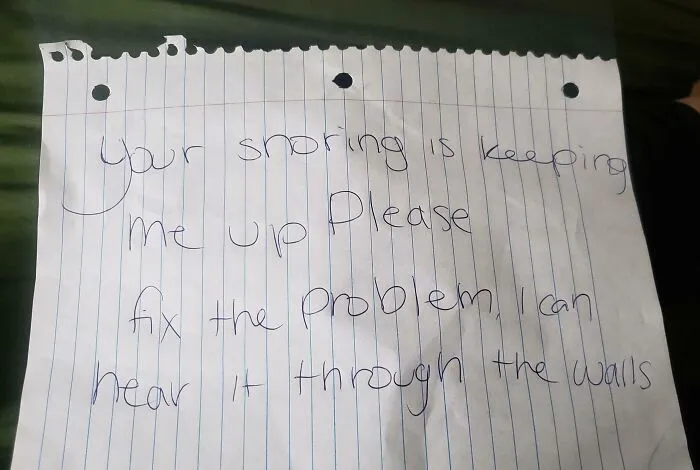 Your snoring is keeping
me up Please
fix the problem, I can
hear it through the walls